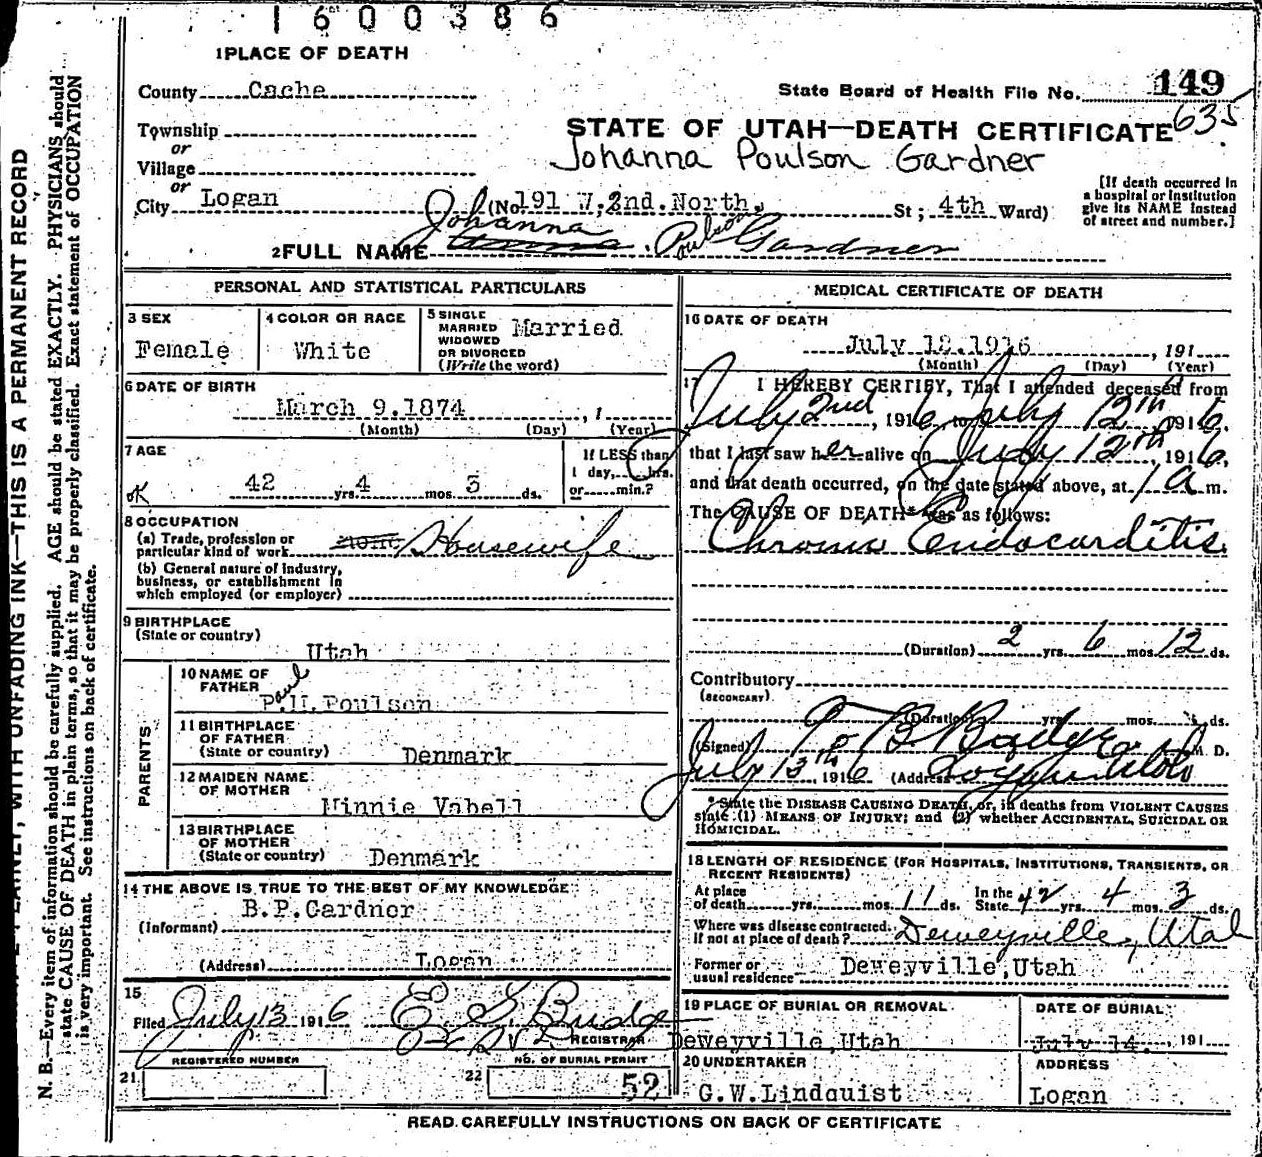 1600386
1 PLACE OF DEATH
County Cache
State Board of Health File No. 149
Township
or
STATE OF UTAH—DEATH CERTIFICATE 635
Village
Johanna Poulson Gardner
or
City Logan (No. 191 W. 2nd. North, St; 4th Ward)
[If death occurred in
a hospital or institution
give its NAME instead
of street and number.]
2 FULL NAME Johanna Poulson Gardner
PERSONAL AND STATISTICAL PARTICULARS
3 SEX
Female
4 COLOR OR RACE
White
5 SINGLE
MARRIED
WIDOWED
OR DIVORCED
(Write the word)
Married
6 DATE OF BIRTH
March 9. 1874, 1
(Month) (Day) (Year)
7 AGE
OK 42 yrs. 4 mos. 3 ds.
If LESS than
1 day, hrs.
or min.?
8 OCCUPATION
(a) Trade, profession or
particular kind of work none Housewife
(b) General nature of industry,
business, or establishment in
which employed (or employer)
9 BIRTHPLACE
(State or country)
Utah
PARENTS
10 NAME OF
FATHER
Paul
Poulson
11 BIRTHPLACE
OF FATHER
(State or country) Denmark
12 MAIDEN NAME
OF MOTHER
Minnie Vabell
13 BIRTHPLACE
OF MOTHER
(State or country) Denmark
14 THE ABOVE IS TRUE TO THE BEST OF MY KNOWLEDGE
B.P. Gardner
(Informant)
(Address) Logan
15
Filed July 13 1916 E. S. Budge
REGISTRAR
REGISTERED NUMBER
21
NO. OF BURIAL PERMIT
22 52
MEDICAL CERTIFICATE OF DEATH
16 DATE OF DEATH
July 12. 1916, 191
(Month) (Day) (Year)
17 I HEREBY CERTIFY, That I attended deceased from
July 2nd, 1916 to July 12th 1916,
that I last saw her alive on July 12th, 1916,
and that death occurred, on the date stated above, at 1 a m.
The CAUSE OF DEATH* was as follows:
Chronic Endocarditis
(Duration) 2 yrs. 6 mos. 12 ds.
Contributory
(SECONDARY)
(Duration) yrs. mos. ds.
(Signed) M. D.
July 13th, 1916 (Address) Logan Utah
* State the DISEASE CAUSING DEATH, or, in deaths from VIOLENT CAUSES
state (1) MEANS OF INJURY; and (2) whether ACCIDENTAL, SUICIDAL OR
HOMICIDAL.
18 LENGTH OF RESIDENCE (FOR HOSPITALS, INSTITUTIONS, TRANSIENTS, OR
RECENT RESIDENTS)
At place
of death yrs. mos. 11 ds.
In the
State 42 yrs. 4 mos. 3 ds.
Where was disease contracted,
if not at place of death? Deweyville, Utah
Former or
usual residence Deweyville, Utah
19 PLACE OF BURIAL OR REMOVAL
Deweyville, Utah
DATE OF BURIAL
July 14. 191
20 UNDERTAKER
G.W. Lindquist
ADDRESS
Logan
READ CAREFULLY INSTRUCTIONS ON BACK OF CERTIFICATE
PLAINLY, WITH UNFADING INK—THIS IS A PERMANENT RECORD
N. B.—Every item of information should be carefully supplied. AGE should be stated EXACTLY. PHYSICIANS should
state CAUSE OF DEATH in plain terms, so that it may be properly classified. Exact statement of OCCUPATION
is very important. See instructions on back of certificate.